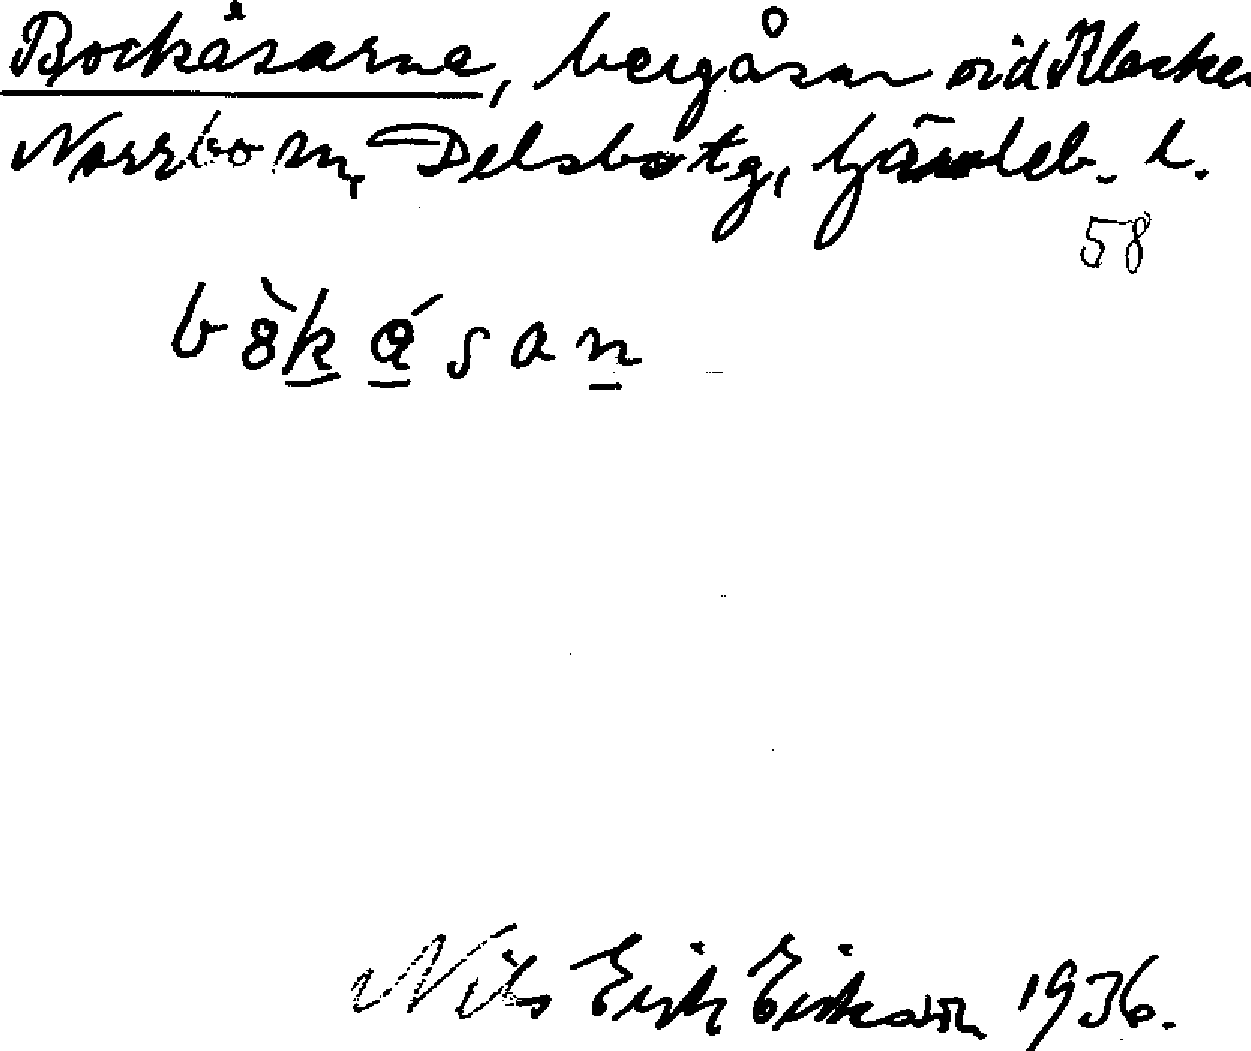 Bockåsarne, bergåsar vid Klacken
Norrbo sn, Delsbo tg, Gävleb. l.
58
Nils Erik Erikson 1936.